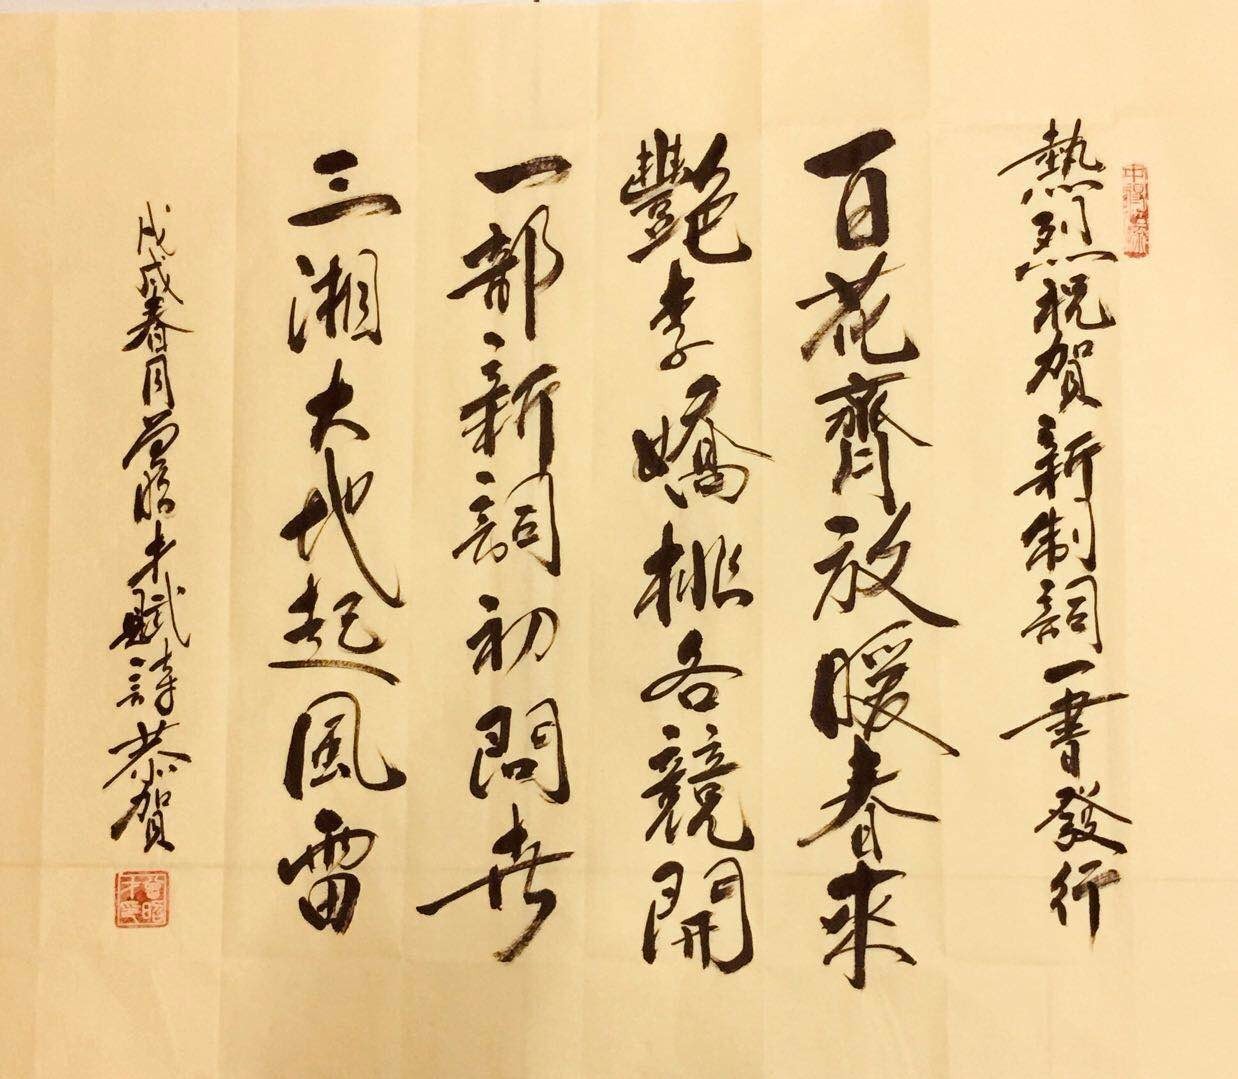 熱烈祝賀新制詞一書發行
百花齊放暖春來
艷李嬌桃各競開
一部新詞初問世
三湘大地起風雷
戊戌春月曾昭才賦詩恭賀
曾昭才印